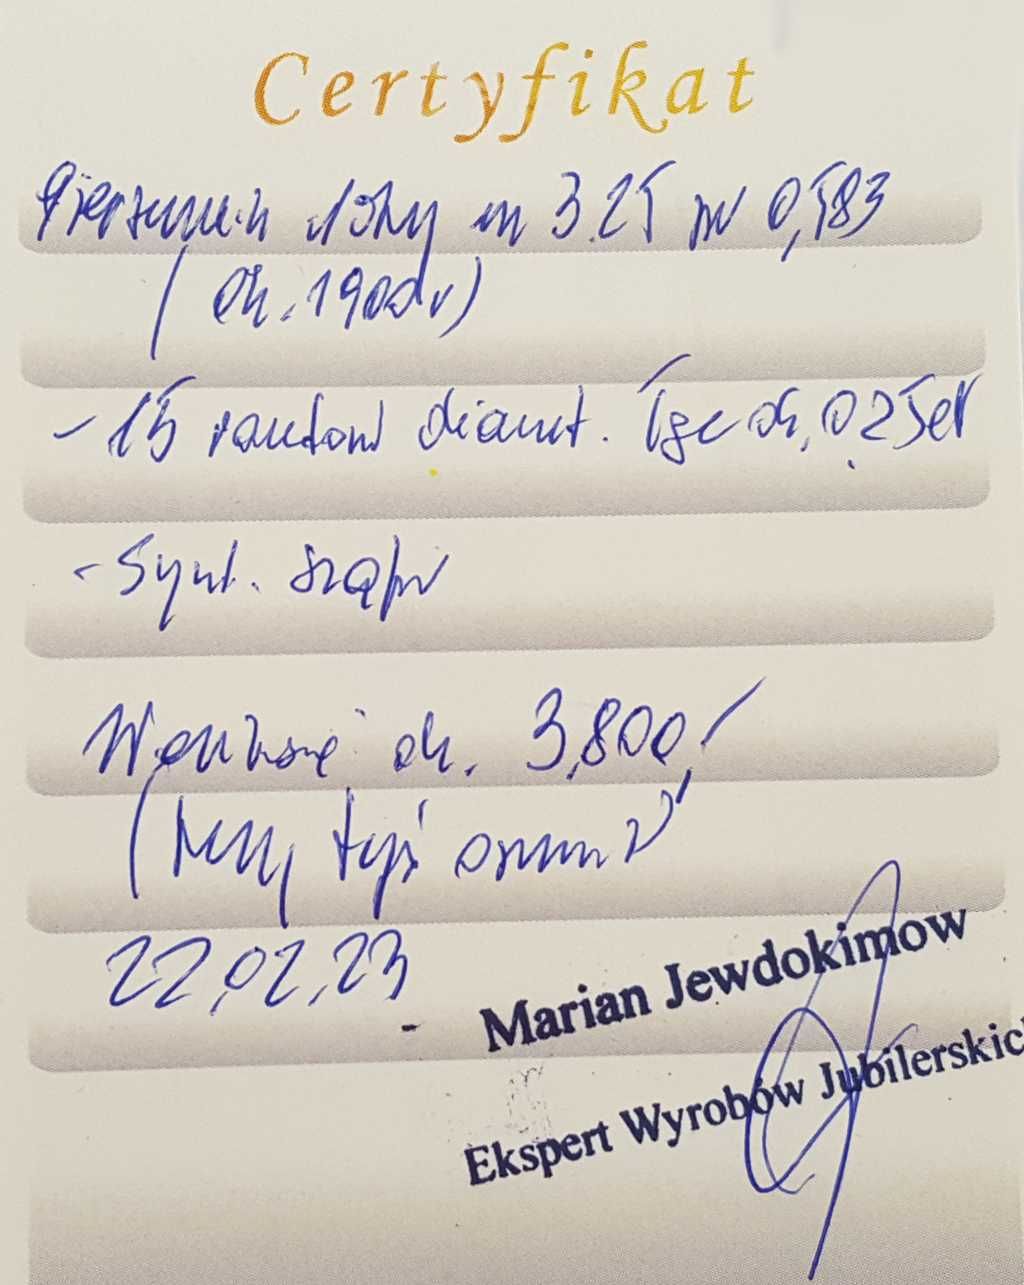 Certyfikat
Pierścionek złoty m 3.25 pr 0,583
( ok. 1900 r)
- 15 rautów diament. Tgc ok, 0.25 ct
- Synt. szafir
Wartość ok. 3,800,
( trzy tyś osiem
22,02,23
Marian Jewdokimow
Ekspert Wyrobów Jubilerskic